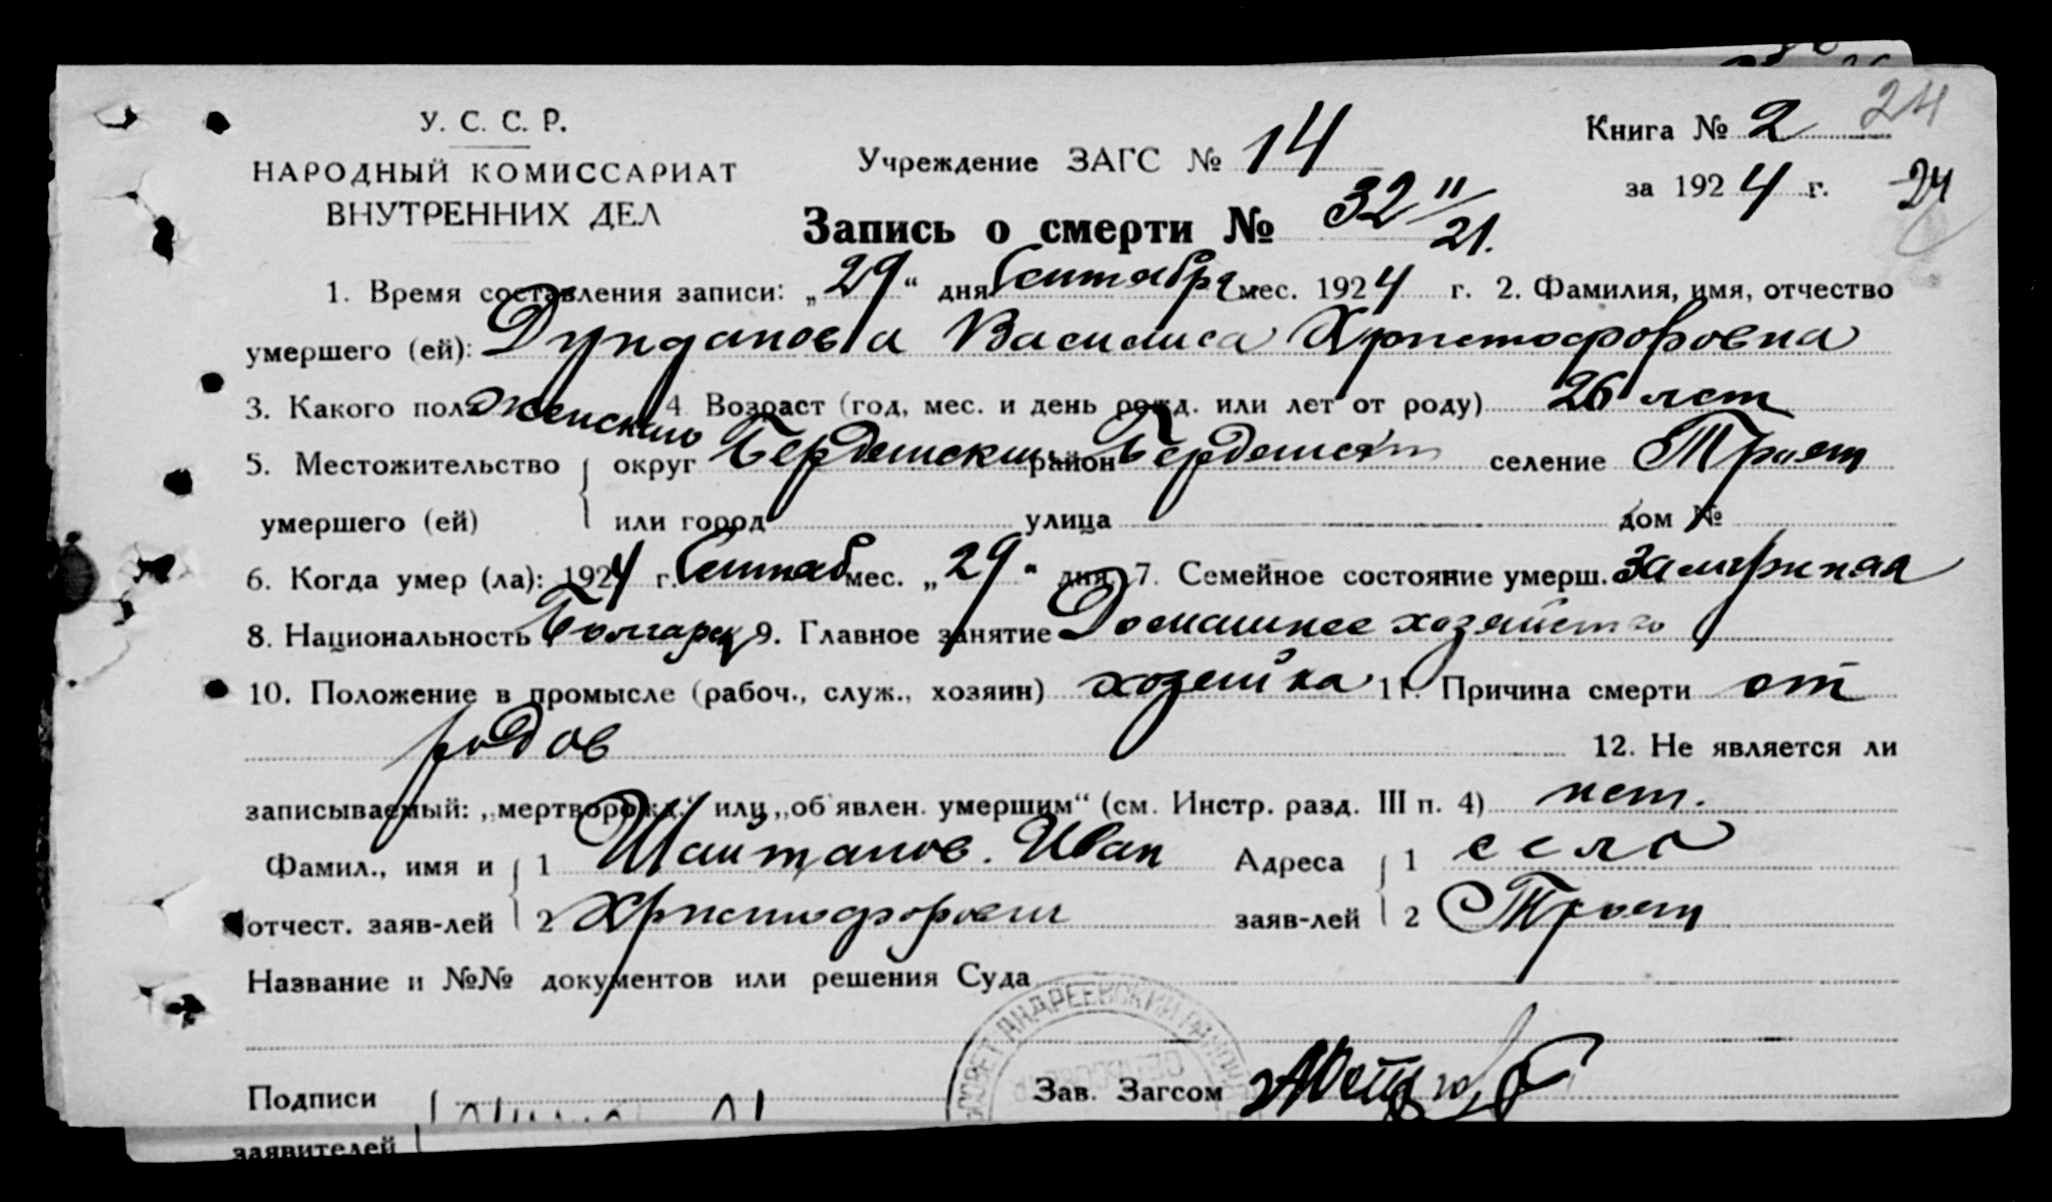 У. С. С. Р.
НАРОДНЫЙ КОМИССАРИАТ
ВНУТРЕННИХ ДЕЛ
Учреждение ЗАГС № 14
Книга № 2 24
за 1924 г. 24
Запись о смерти № 32 11/21.
1. Время составления записи: „29“ дня Сентября мес. 1924 г. 2. Фамилия, имя, отчество
умершего (ей): Дунданова Василиса Христофоровна
3. Какого пола женский 4. Возраст (год, мес. и день рожд. или лет от роду) 26 лет
5. Местожительство умершего (ей) округ Бердянский район Бердянск селение Трояны
или город улица дом №
6. Когда умер (ла): 1924 г. Сентяб мес. „29“ дня 7. Семейное состояние умерш. замужняя
8. Национальность Болгарк 9. Главное занятие Домашнее хозяйство
10. Положение в промысле (рабоч., служ., хозяин) хозяйка 11. Причина смерти от
родов 12. Не является ли
записываемый: „мертворожд.“ или „об'явлен. умершим“ (см. Инстр. разд. III п. 4) нет.
Фамил., имя и отчест. заяв-лей 1 Шайтанов. Иван Адреса заяв-лей 1 село
2 Христофорович 2 Трояны
Название и №№ документов или решения Суда
АНДРЕЕВСКИЙ
Подписи Зав. Загсом
заявителей